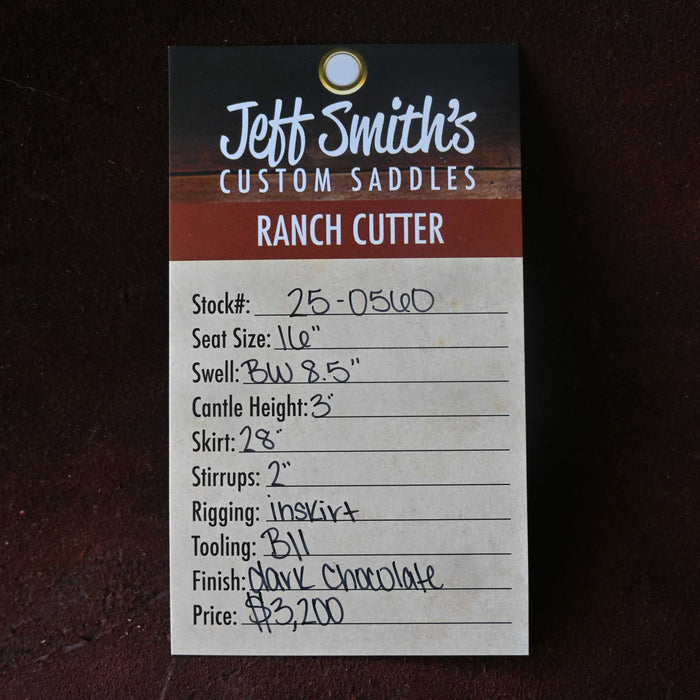 Jeff Smith's
CUSTOM SADDLES
RANCH CUTTER
Stock#: 25-0560
Seat Size: 16"
Swell: BW 8.5"
Cantle Height: 3"
Skirt: 28"
Stirrups: 2"
Rigging: inskirt
Tooling: B11
Finish: dark chocolate
Price: $3,200